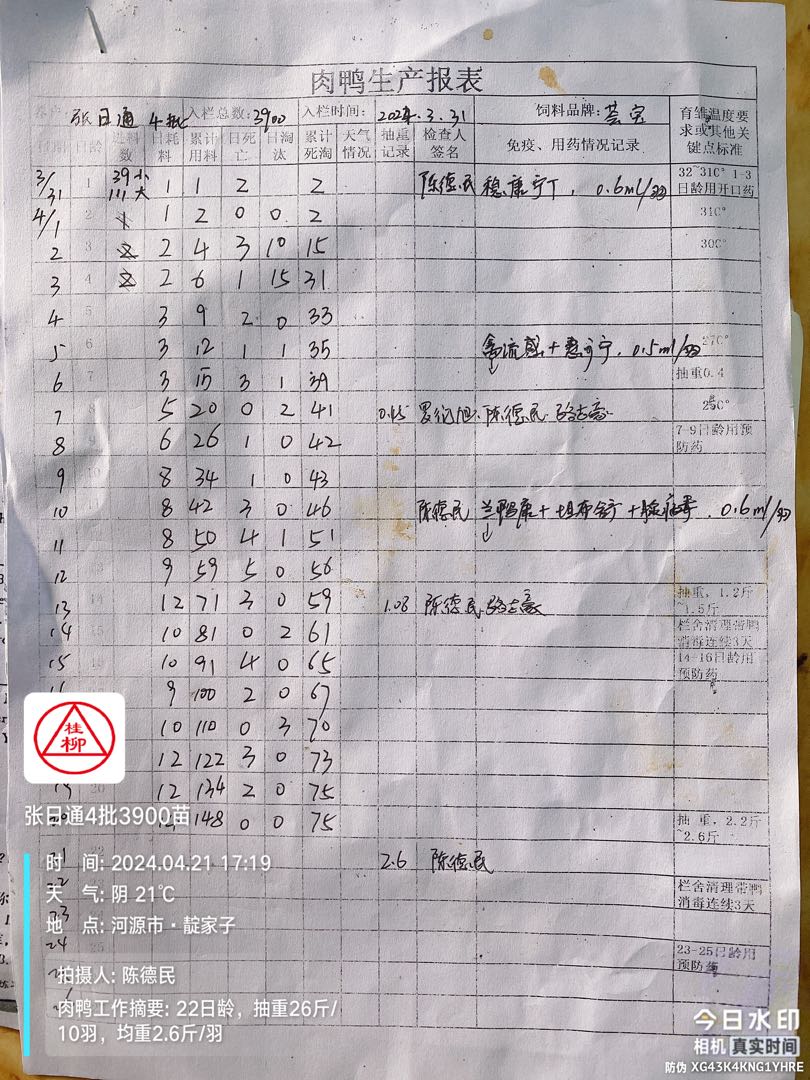 肉鸭生产报表
养户 张日通 4批 入栏总数: 3900 入栏时间: 2024.3.31 饲料品牌: 育雏温度要求或其他关键点标准
日龄 进料数 日耗料 累计用料 日死亡 日淘汰 累计死淘 天气情况 抽重记录 检查人签名 免疫、用药情况记录
3/31 1 39小 111大 1 1 2 2 陈德民 0.6ml/羽 32~31C° 1-3日龄用开口药
4/1 2 1 2 0 0 2 31C°
2 3 2 4 3 10 15 30C°
3 4 2 6 1 15 31
4 5 3 9 2 0 33
5 6 3 12 1 1 35 禽流感+ 0.5ml/羽 27C°
6 7 3 15 3 1 39 抽重0.4
7 8 5 20 0 2 41 0.45 陈德民 25C°
8 9 6 26 1 0 42 7-9日龄用预防药
9 10 8 34 1 0 43
10 8 42 3 0 46 陈德民 0.6ml/羽
11 8 50 4 1 51
12 13 9 59 5 0 56
13 14 12 71 3 0 59 1.08 陈德民 抽重，1.2斤~1.5斤
14 15 10 81 0 2 61 栏舍清理带鸭消毒连续3天
15 10 91 4 0 65 14-16日龄用预防药
9 100 2 0 67
10 110 0 3 70
12 122 3 0 73
19 20 12 134 2 0 75
148 0 0 75 抽重，2.2斤~2.6斤
21 2.6 陈德民
22 栏舍清理带鸭消毒连续3天
23
24 25 23-25日龄用预防药
桂柳
张日通4批3900苗
时 间: 2024.04.21 17:19
天 气: 阴 21℃
地 点: 河源市·靛家子
拍摄人: 陈德民
肉鸭工作摘要: 22日龄，抽重26斤/
10羽，均重2.6斤/羽
今日水印
相机 真实时间
防伪 XG43K4KNG1YHRE